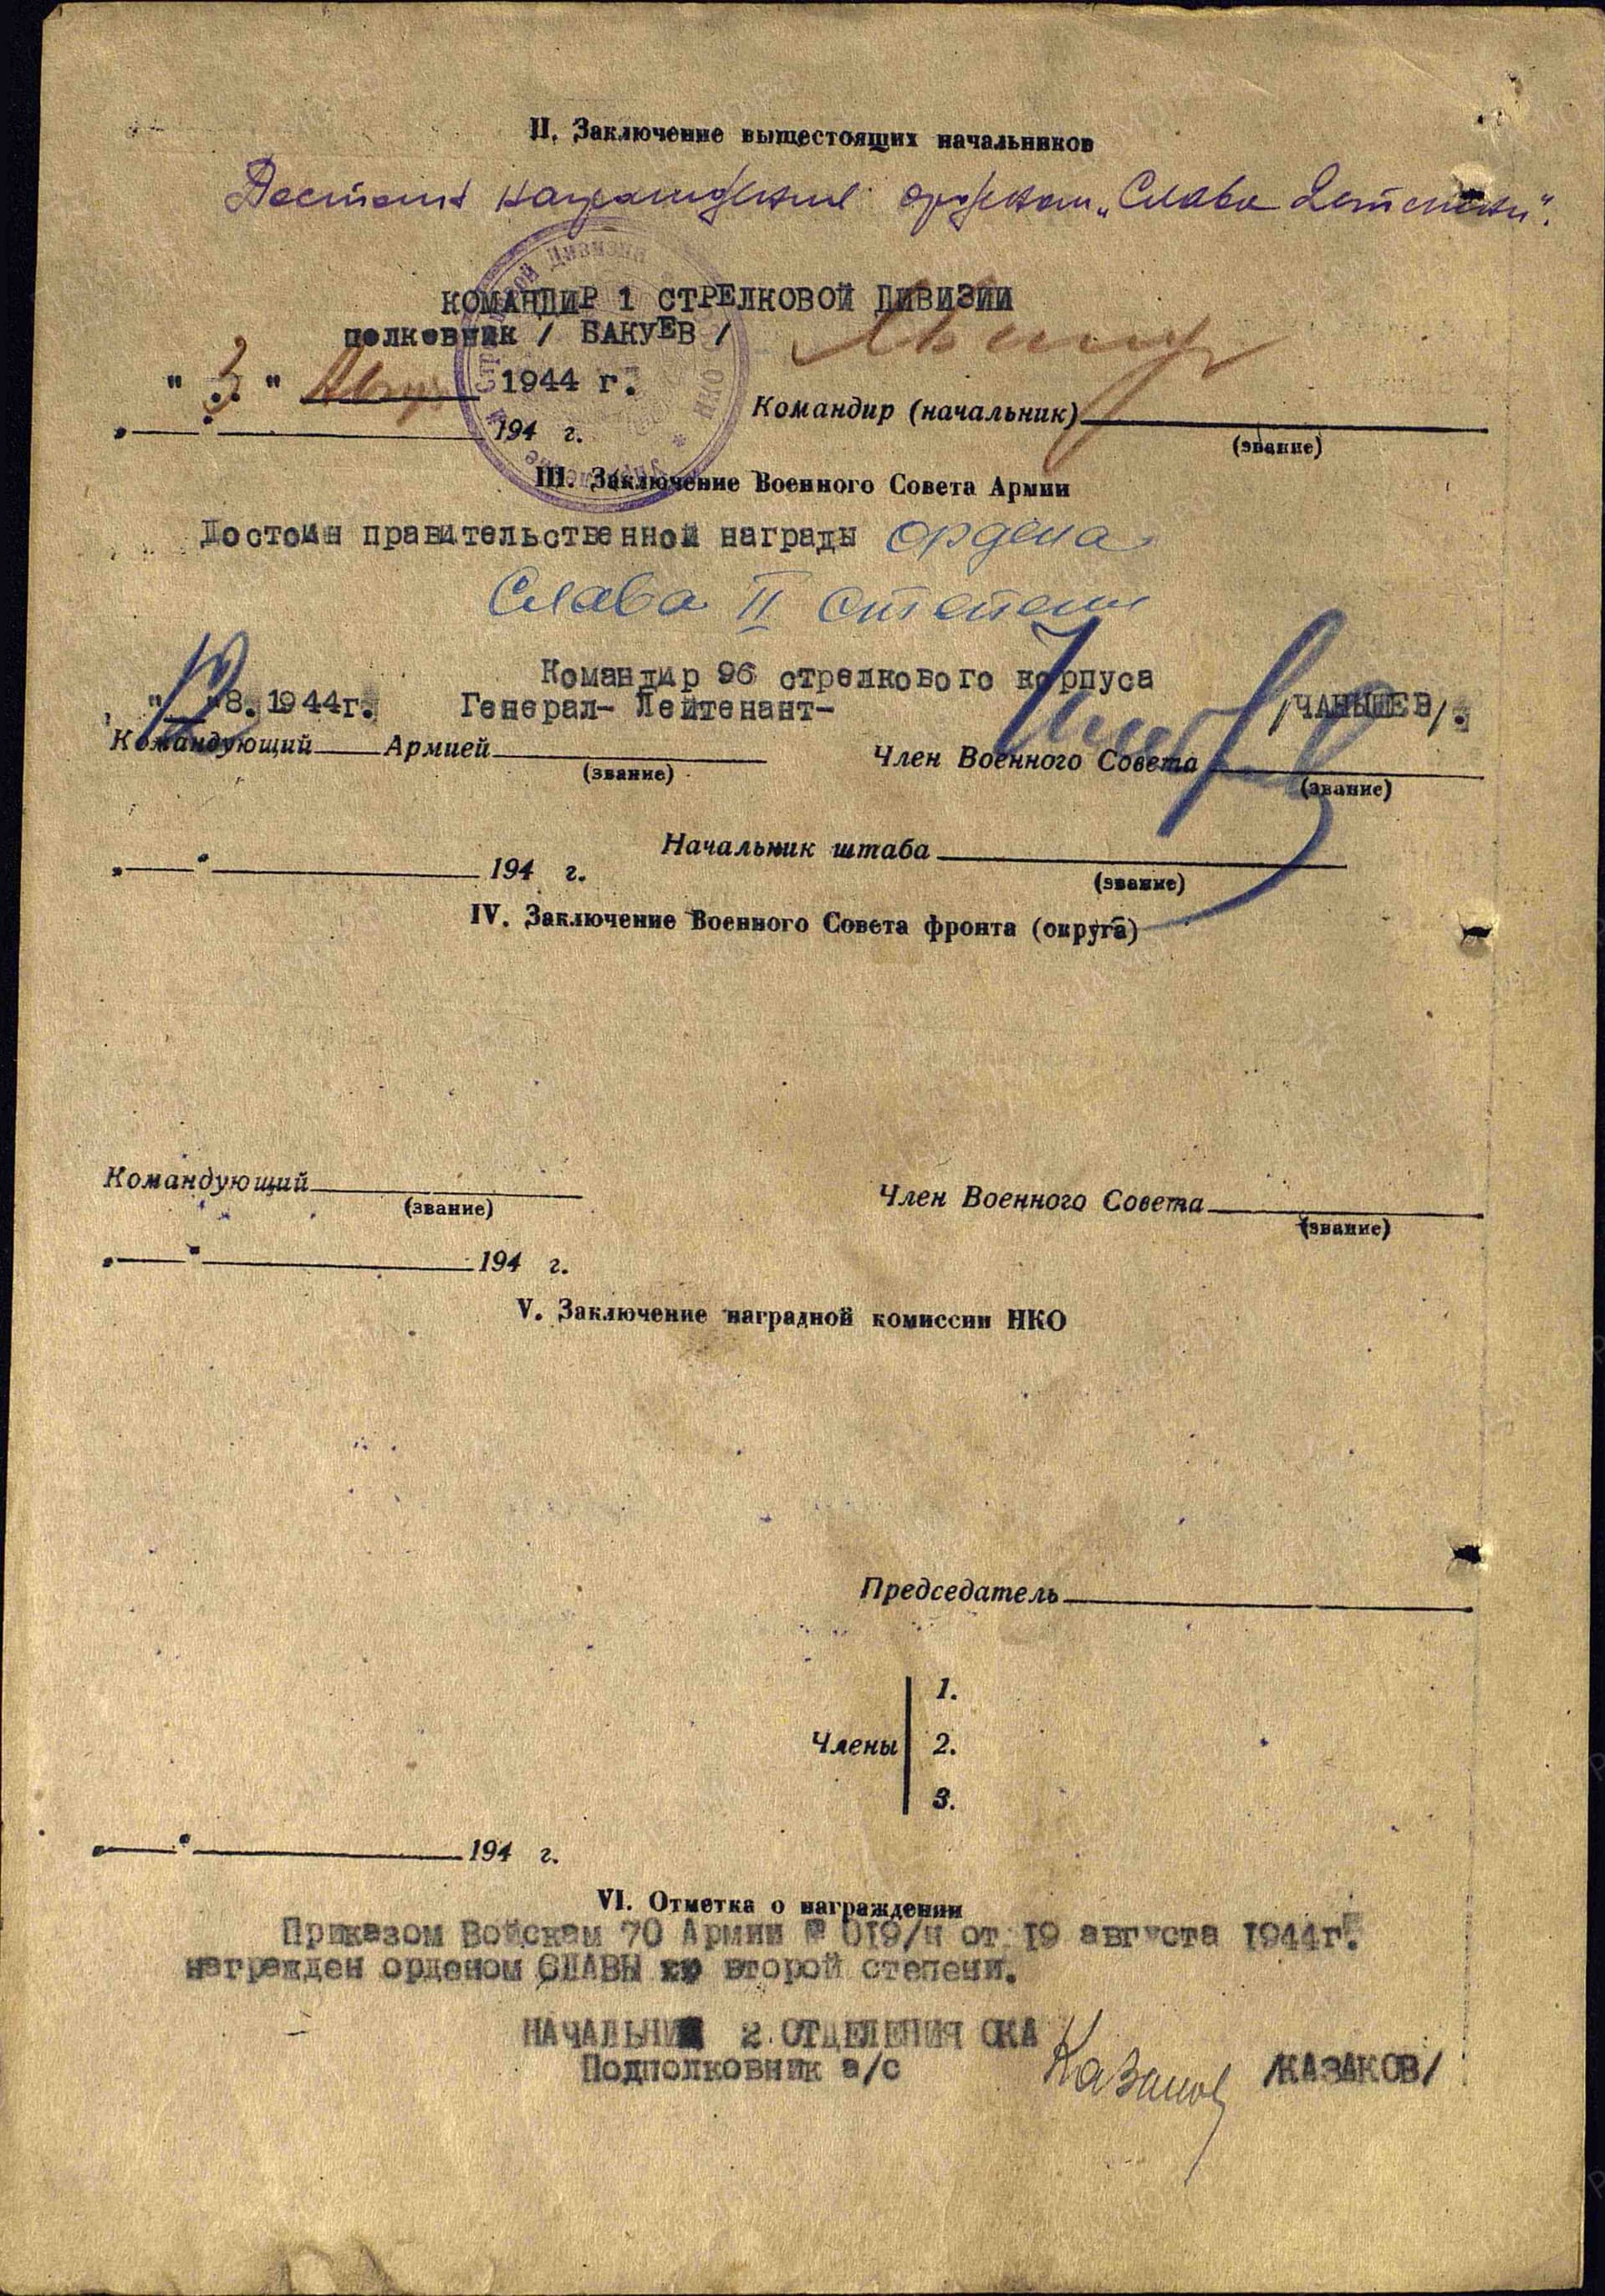 II. Заключение вышестоящих начальников
Достоин награждения орденом „Слава 2 степени".
КОМАНДИР 1 СТРЕЛКОВОЙ ДИВИЗИИ
полковник / БАКУЕВ /
" 3 " 1944 г.
Командир (начальник)
194 г.
(звание)
III. Заключение Военного Совета Армии
Достоин правительственной награды ордена
Слава II степени
Командир 96 стрелкового корпуса
" " 8. 1944г. Генерал- Лейтенант- /ЧАНЫШЕВ/.
Командующий Армией
(звание)
Член Военного Совета
(звание)
Начальник штаба
(звание)
194 г.
IV. Заключение Военного Совета фронта (округа)
Командующий
(звание)
Член Военного Совета
(звание)
194 г.
V. Заключение наградной комиссии НКО
Председатель
1.
Члены 2.
3.
194 г.
VI. Отметка о награждении
Приказом Войскам 70 Армии № 019/н от 19 августа 1944г.
награжден орденом СЛАВЫ второй степени.
НАЧАЛЬНИК 2 ОТДЕЛЕНИЯ ОКА
Подполковник а/с Казаков /КАЗАКОВ/